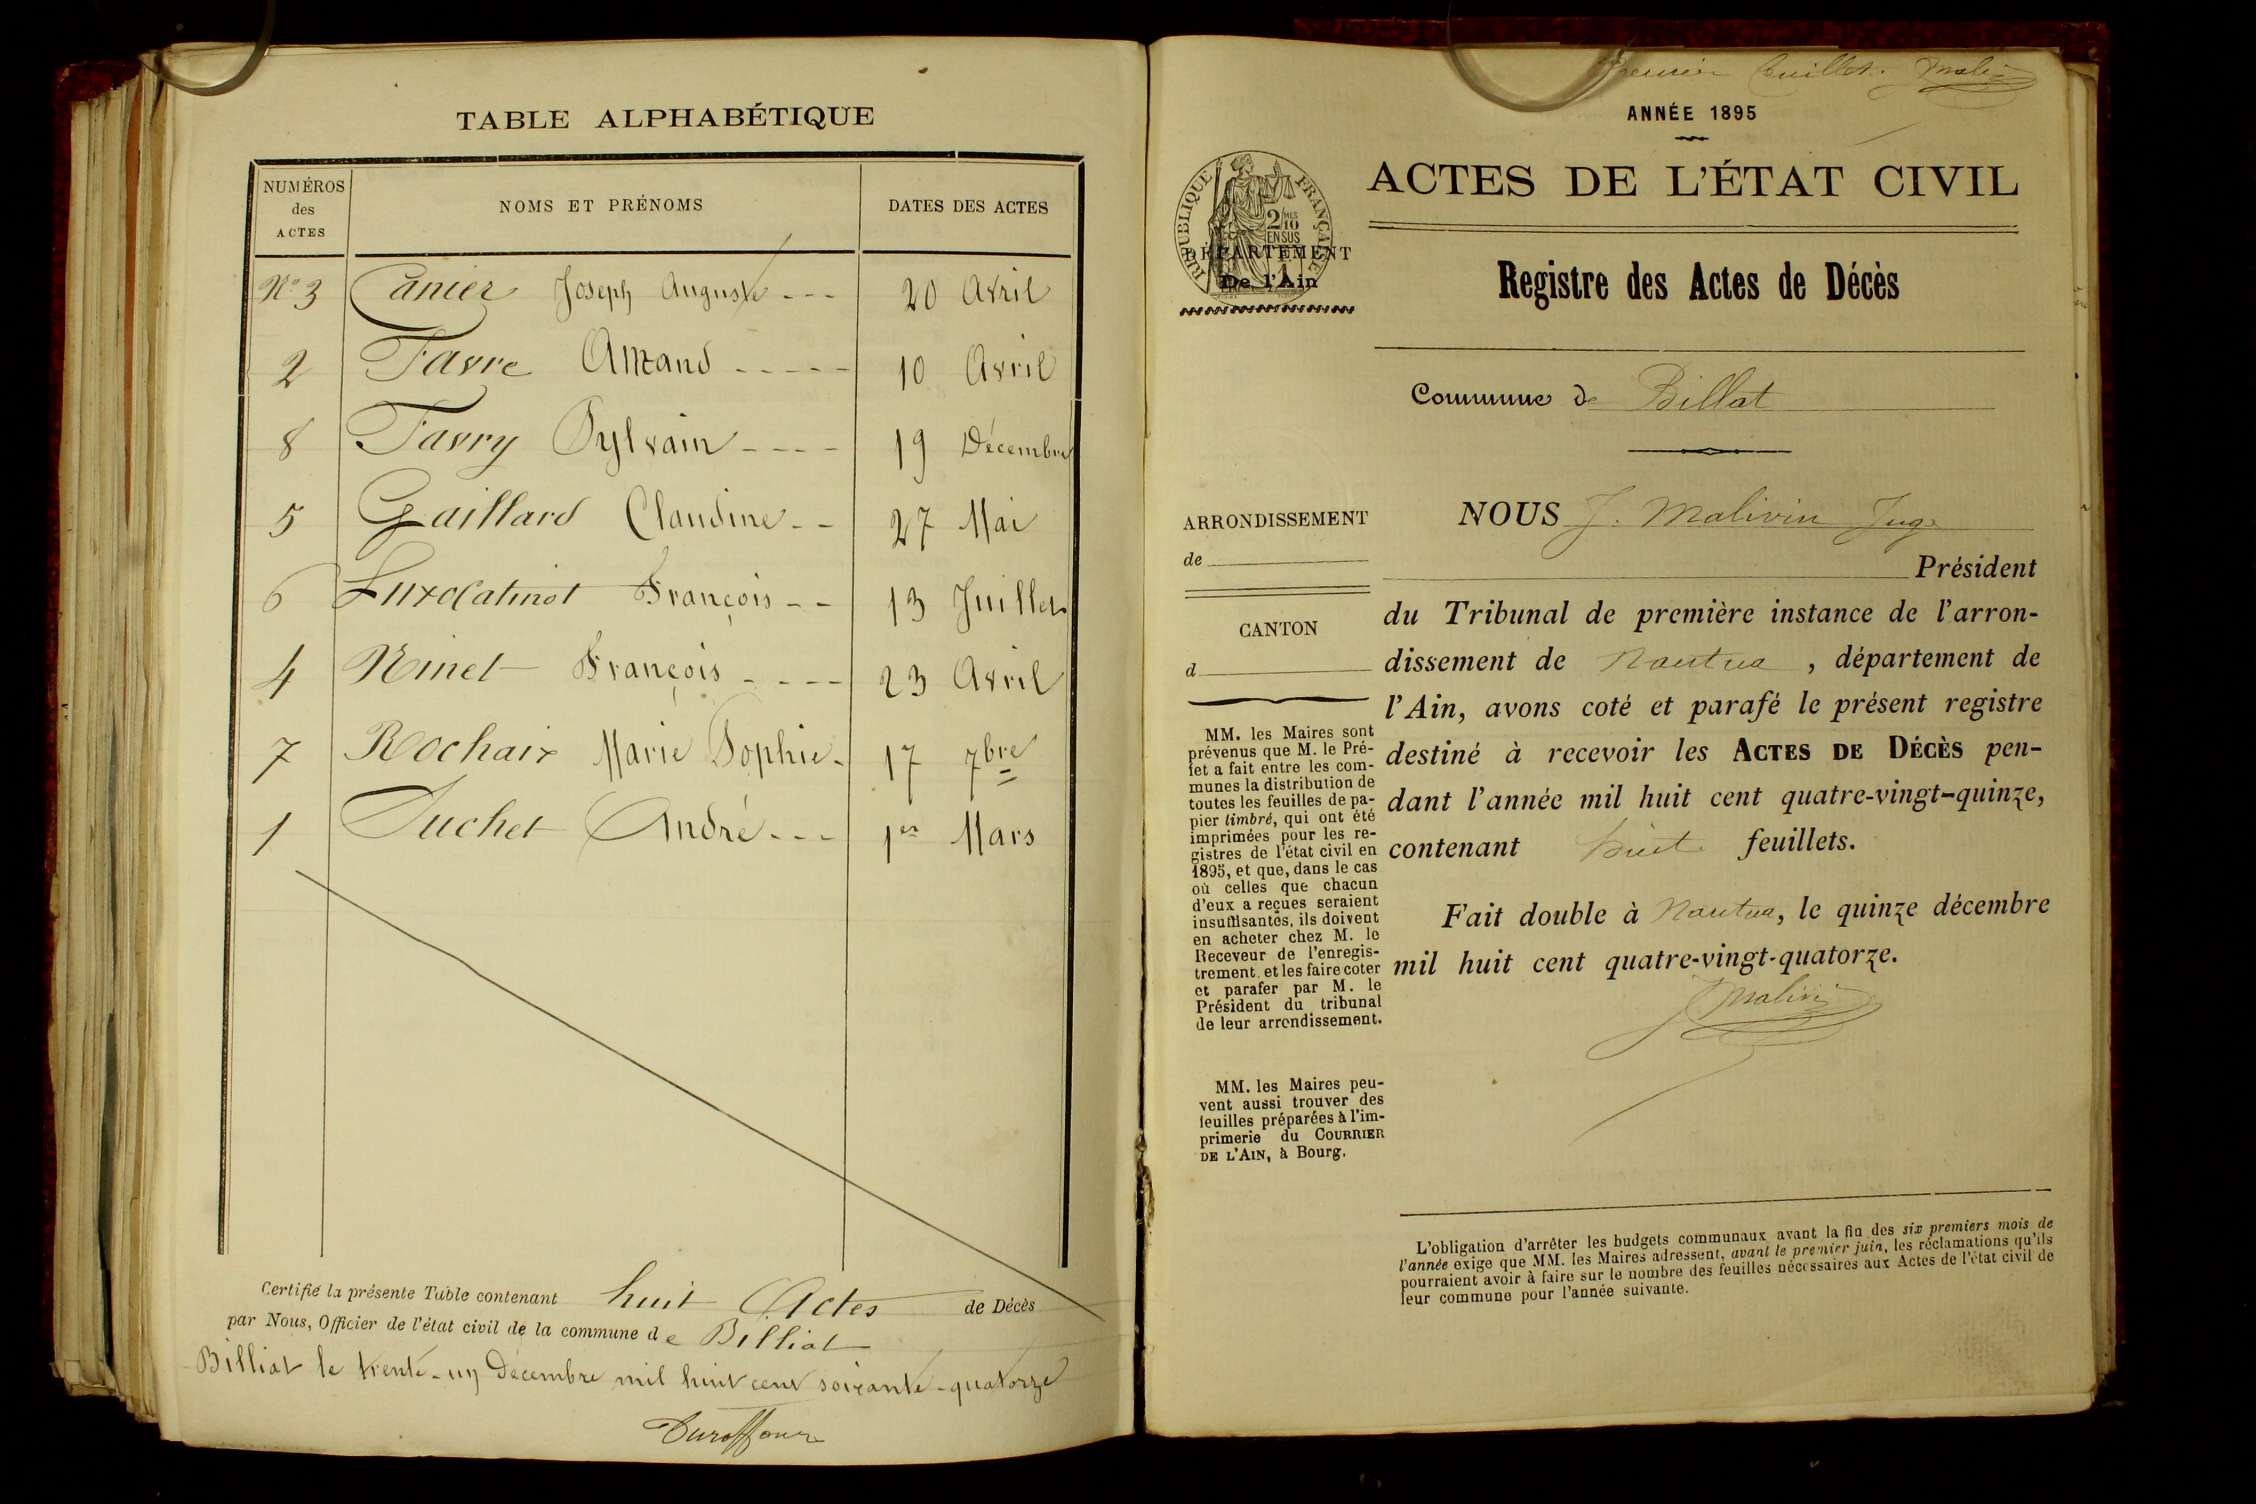 TABLE ALPHABÉTIQUE
NUMÉROS des ACTES NOMS ET PRÉNOMS DATES DES ACTES
No 3 Canier Joseph Auguste --- 20 Avril
2 Favre Amand ----- 10 Avril
8 Favry Sylvain ---- 19 Décembre
5 Gaillard Claudine -- 27 Mai
6 François -- 13 Juillet
4 Ninet François ---- 23 Avril
7 Rochaix Marie Sophie - 17 7bre
1 Suchet André --- 1er Mars
Certifié la présente Table contenant huit Actes de Décès
par Nous, Officier de l'état civil de la commune de Billiat
Billiat le trente-un Décembre mil huit cent soixante-quatorze
Premier feuillet.
ANNÉE 1895
ACTES DE L'ÉTAT CIVIL
RÉPUBLIQUE FRANÇAISE
2 MES
10
EN SUS
DÉPARTEMENT
De l'Ain
Registre des Actes de Décès
Commune de Billat
NOUS J. Malivin Juge
Président
du Tribunal de première instance de l'arron-
dissement de Nantua, département de
l'Ain, avons coté et parafé le présent registre
destiné à recevoir les ACTES DE DÉCÈS pen-
dant l'année mil huit cent quatre-vingt-quinze,
contenant huit feuillets.
Fait double à Nantua, le quinze décembre
mil huit cent quatre-vingt-quatorze.
Malivin
ARRONDISSEMENT
de
CANTON
d
MM. les Maires sont
prévenus que M. le Pré-
fet a fait entre les com-
munes la distribution de
toutes les feuilles de pa-
pier timbré, qui ont été
imprimées pour les re-
gistres de l'état civil en
1895, et que, dans le cas
où celles que chacun
d'eux a reçues seraient
insuffisantes, ils doivent
en acheter chez M. le
Receveur de l'enregis-
trement, et les faire coter
et parafer par M. le
Président du tribunal
de leur arrondissement.
MM. les Maires peu-
vent aussi trouver des
feuilles préparées à l'im-
primerie du COURRIER
DE L'AIN, à Bourg.
L'obligation d'arrêter les budgets communaux avant la fin des six premiers mois de
l'année exige que MM. les Maires adressent, avant le premier juin, les réclamations qu'ils
pourraient avoir à faire sur le nombre des feuilles nécessaires aux Actes de l'état civil de
leur commune pour l'année suivante.